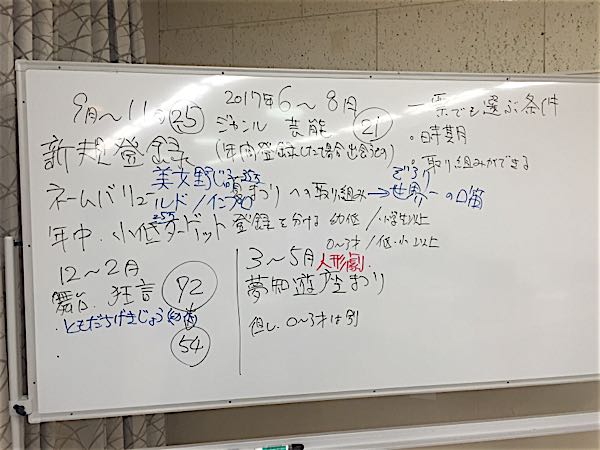 9月～11月 25
2017年6～8月
ジャンル 芸能 21
(年間登録したって場合出会うとの)
一票でも選ぶ条件
・時期
・取り組みができる
新規登録
美文野じゅ
ネームバリュー
ルド/インプロ
まわりへの取り組み→世界一の口笛
年中・小低 ターゲット 登録を分ける 幼低/小学生以上
0～3才/低・小以上
12～2月
舞台 狂言 92
ともだちげきじょう幼歯
54
3～5月 人形劇
夢知遊座まわり
但し、0～3才は別